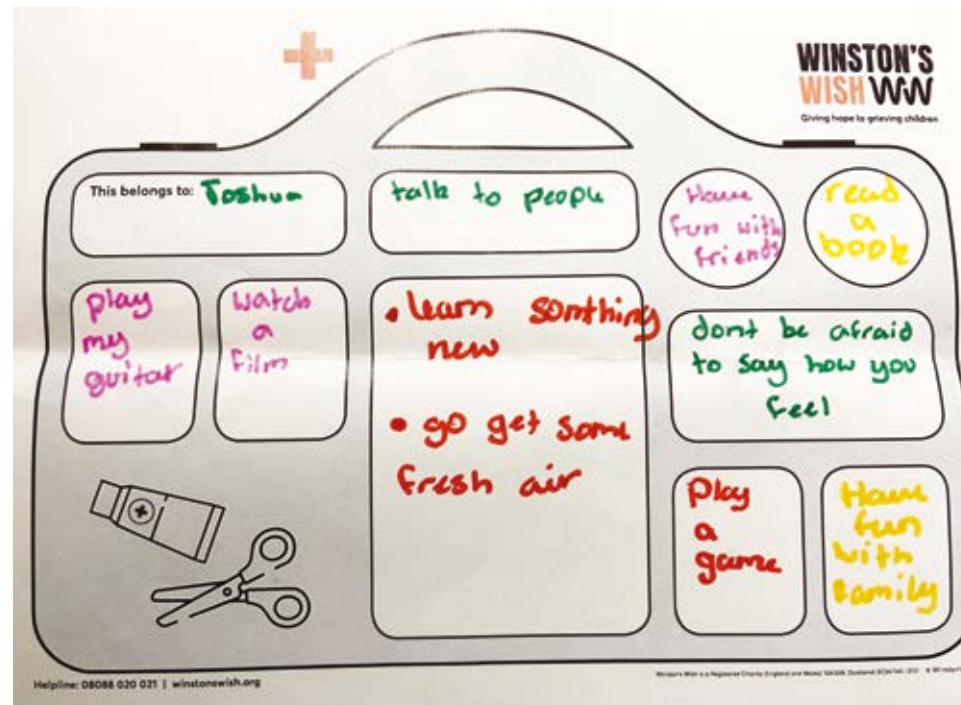 WINSTON'S
WISH WW
Giving hope to grieving children
This belongs to: Joshua
talk to people
Have
fun with
friends
read
a
book
play
my
guitar
watch
a
film
• learn somthing
new
• go get some
fresh air
dont be afraid
to say how you
feel
Play
a
game
Have
fun
with
family
Helpline: 08088 020 021 | winstonswish.org
Winston's Wish is a Registered Charity (England and Wales)